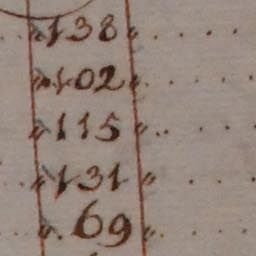 138
102
115
131
69